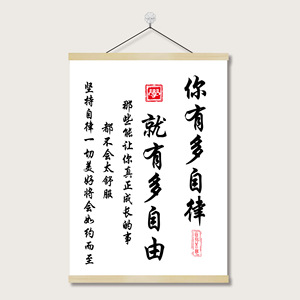 你有多自律
學
就有多自由
那些能让你真正成长的事
都不会太舒服
坚持自律一切美好将会如约而至